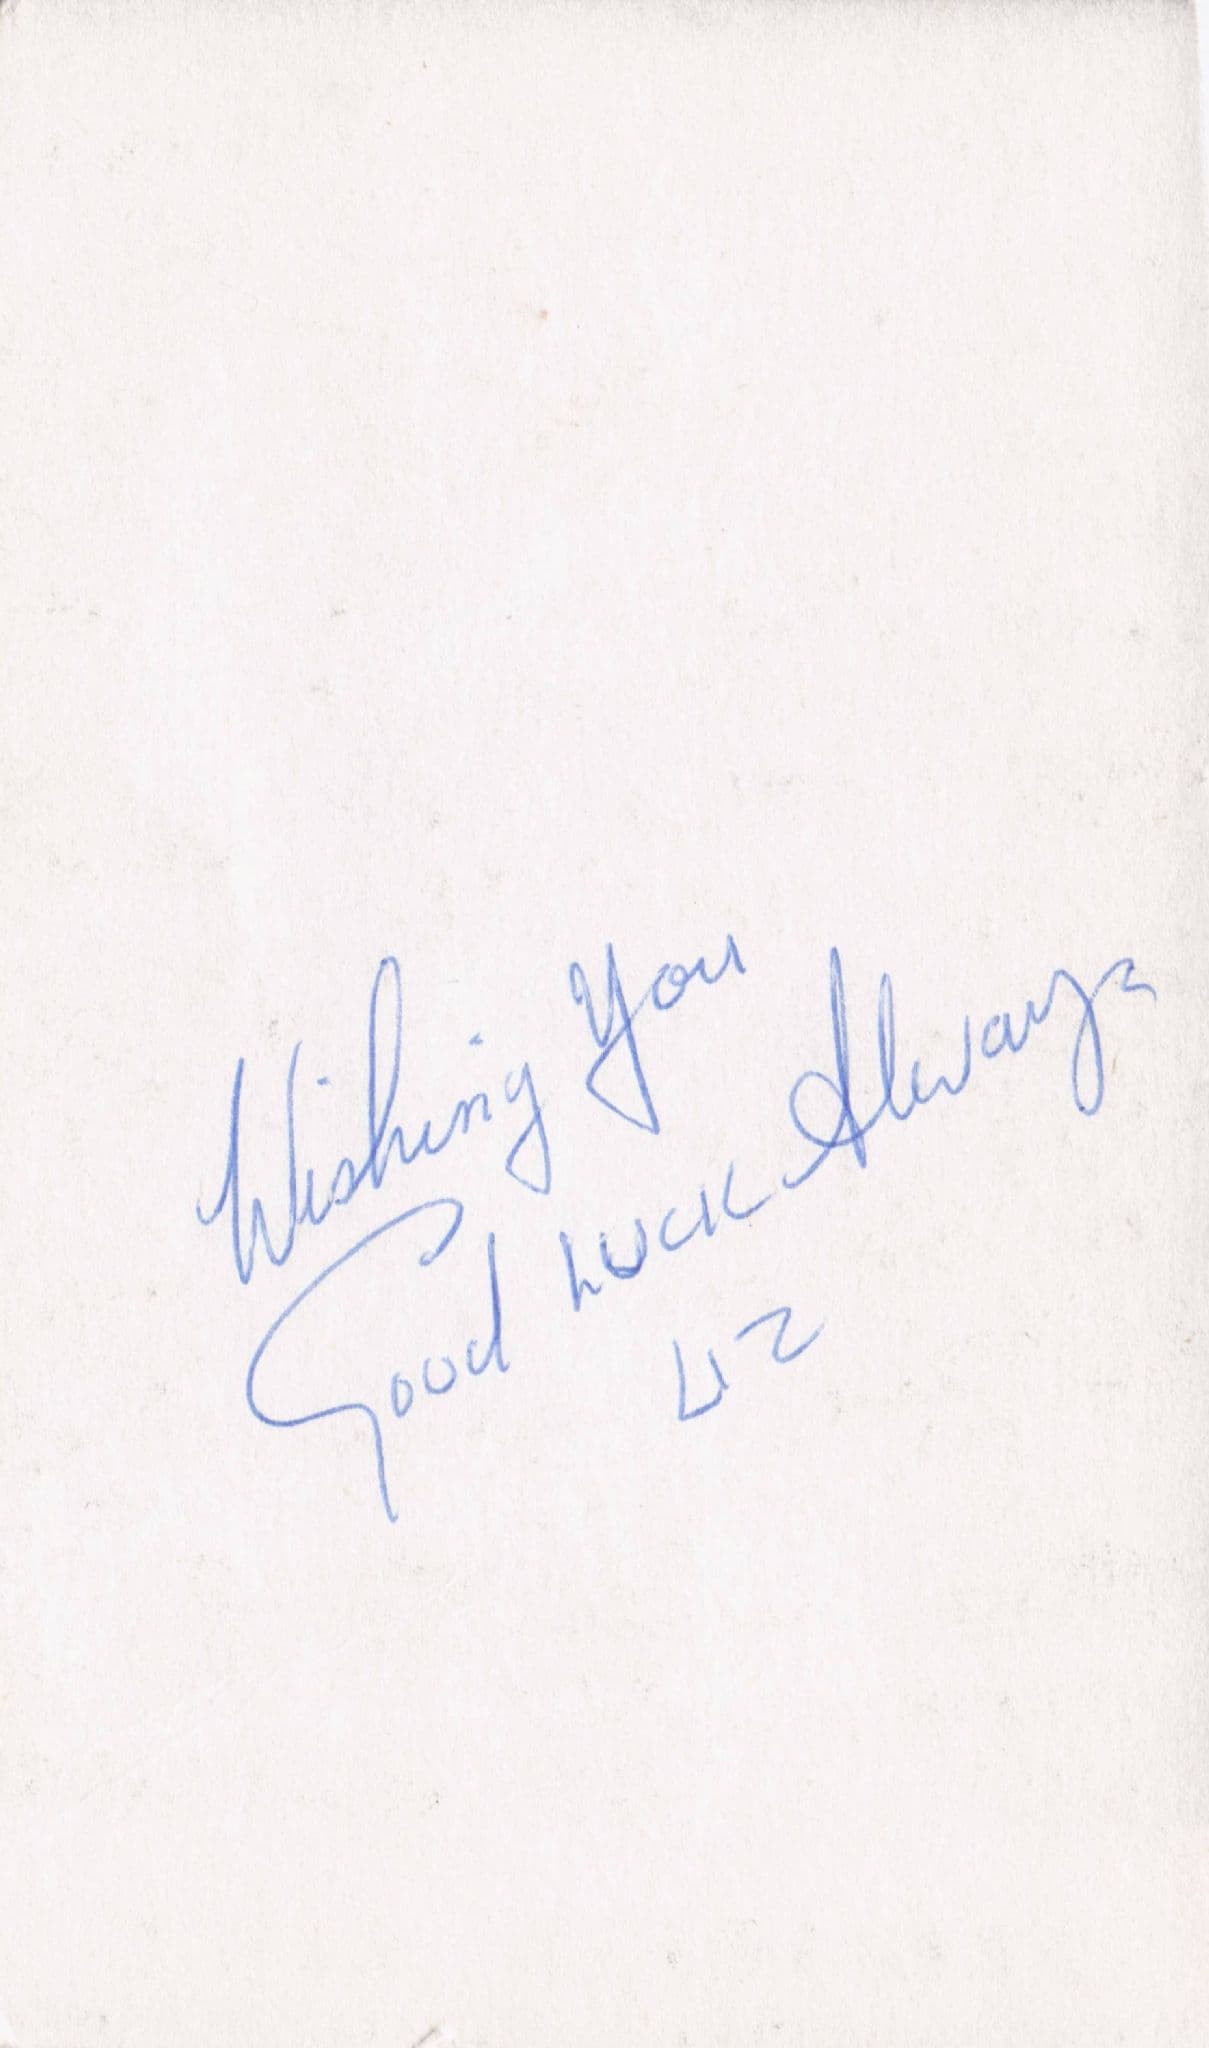 Wishing You
Good Luck Always
Liz